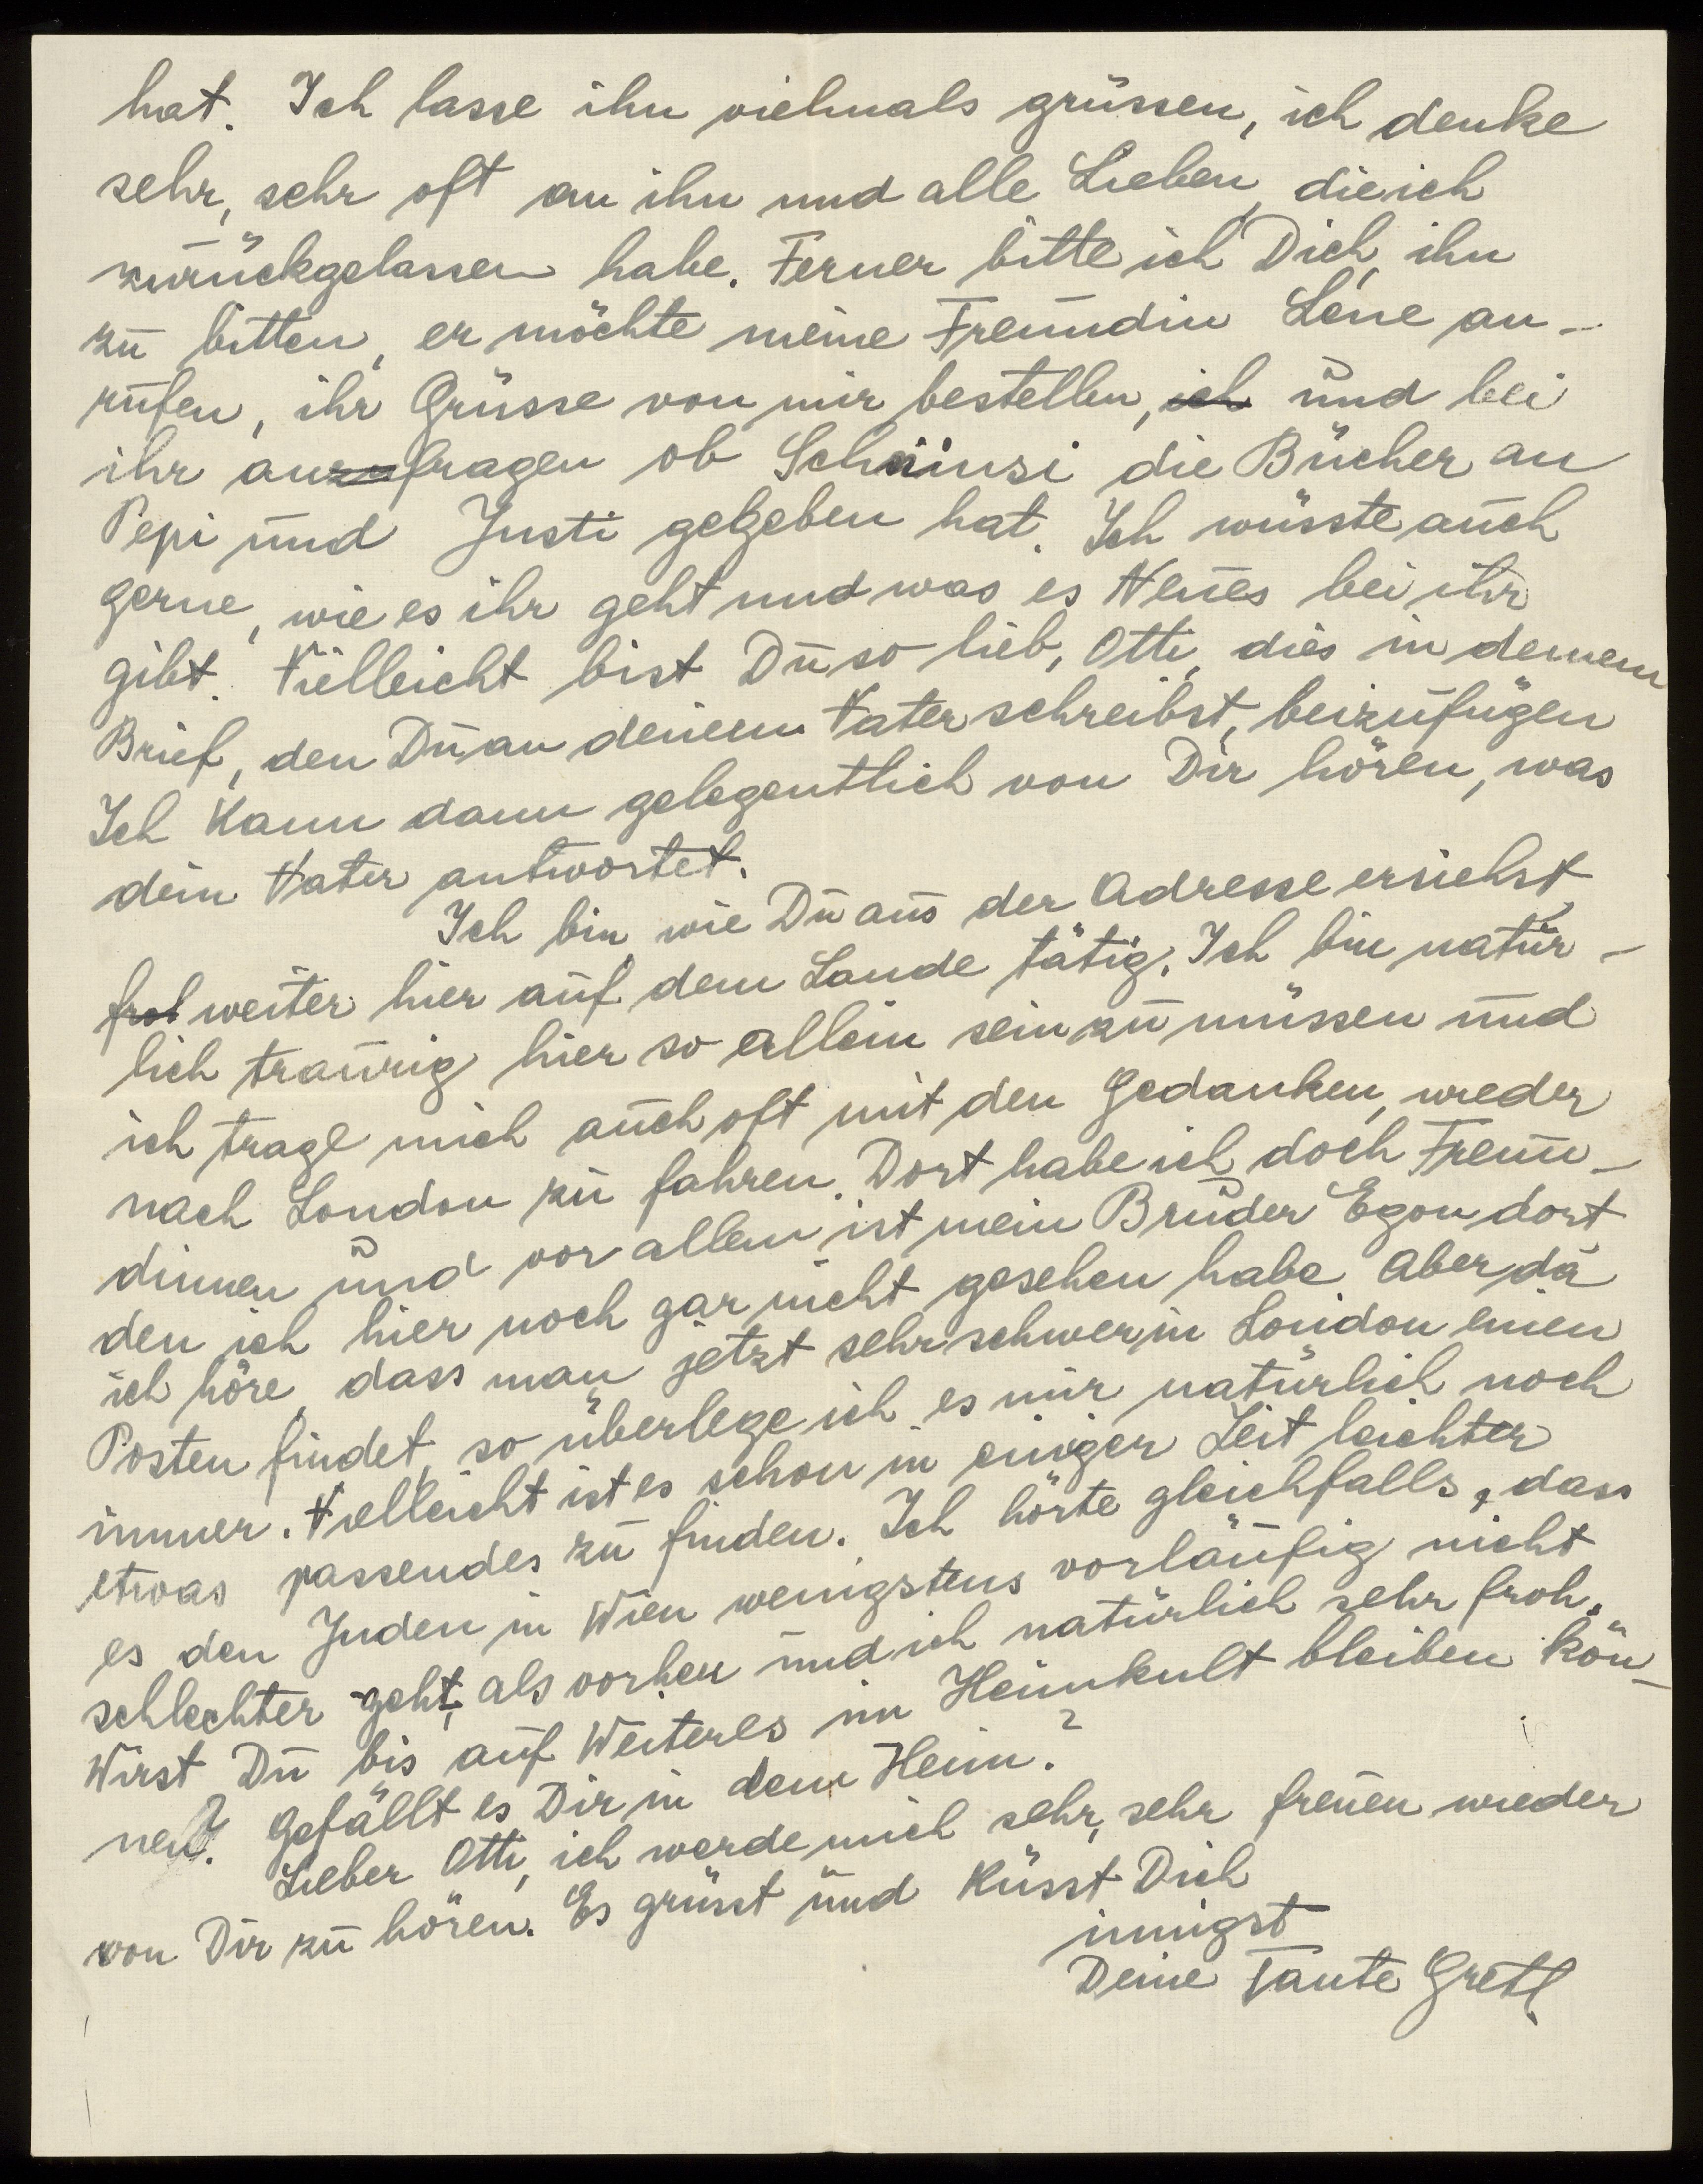 hat. Ich lasse ihn vielmals grüssen, ich denke
sehr, sehr oft an ihn und alle Lieben, die ich
zurückgelassen habe. Ferner bitte ich Dich, ihn
zu bitten, er möchte meine Freundin Lene an-
rufen, ihr Grüsse von mir bestellen, ich und bei
ihr anzufragen ob die Bücher an
Pepi und Justi gegeben hat. Ich wüsste auch
gerne, wie es ihr geht und was es Neues bei ihr
gibt. Vielleicht bist Du so lieb, Otti, dies in deinem
Brief, den Du an deinem Vater schreibst, beizufügen
Ich kann dann gelegentlich von Dir hören, was
dein Vater antwortet.
Ich bin wie Du aus der Adresse ersiehst,
weiter hier auf dem Lande tätig. Ich bin natür-
lich traurig hier so allein sein zu müssen und
ich trage mich auch oft mit den Gedanken, wieder
nach London zu fahren. Dort habe ich doch Freun-
dinnen und vor allem ist mein Bruder Egon dort
den ich hier noch gar nicht gesehen habe. Aber da
ich höre, dass man jetzt sehr schwer in London einen
Posten findet, so überlege ich es mir natürlich noch
immer. Vielleicht ist es schon in einiger Zeit leichter
etwas passendes zu finden. Ich hörte gleichfalls, dass
es den Juden in Wien wenigstens vorläufig nicht
schlechter geht, als vorher und ich natürlich sehr froh.
Wirst Du bis auf Weiteres im bleiben kön-
nen? Gefällt es Dir in dem Heim?
Lieber Otti, ich werde mich sehr, sehr freuen wieder
von Dir zu hören. Es grüsst und küsst Dich
innigst
Deine Tante Gretl.